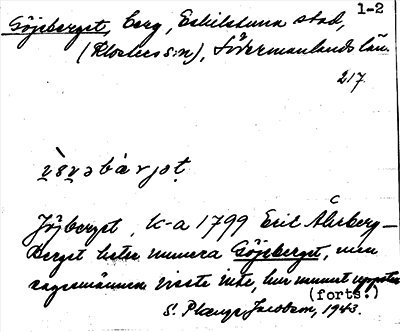 1-2
Göjeberget, berg, Eskilstuna stad,
(Klosters s:n), Södermanlands län.
217.
Jöjberget, k-a 1799 Eric Åkerberg –
Berget heter numera Göjeberget, men
sagesmännen visste inte, hur namnet uppstår
(forts.)
S. Jacobsen, 1943.